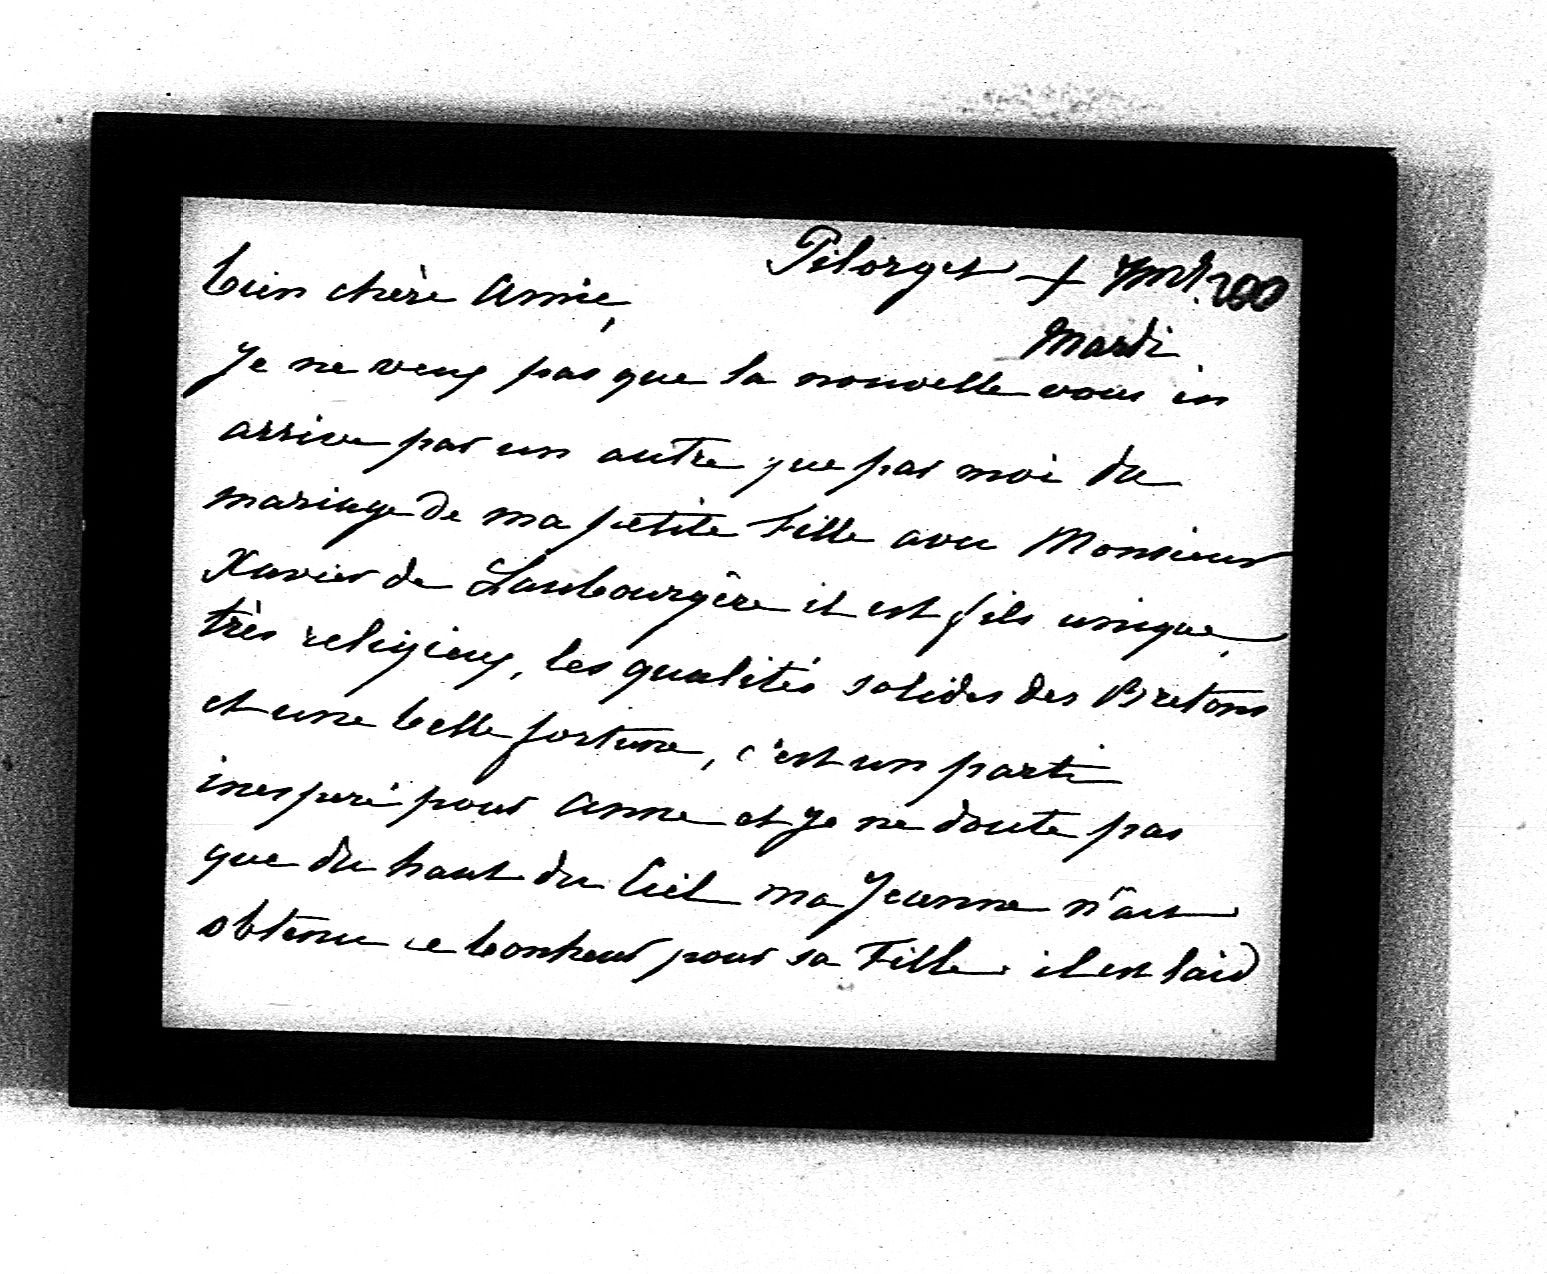 Pilorget + 7mbre 200
Bien chère Amie,
Mardi
Je ne veux pas que la nouvelle vous en
arrive par un autre que par moi du
mariage de ma petite Fille avec Monsieur
Xavier de Laubourgère il est fils unique,
très religieux, les qualités solides des Bretons
et une belle fortune, c'est un parti
inespéré pour Anne et je ne doute pas
que du haut du Ciel ma Jeanne n'ait
obtenu ce bonheur pour sa Fille. il est laid